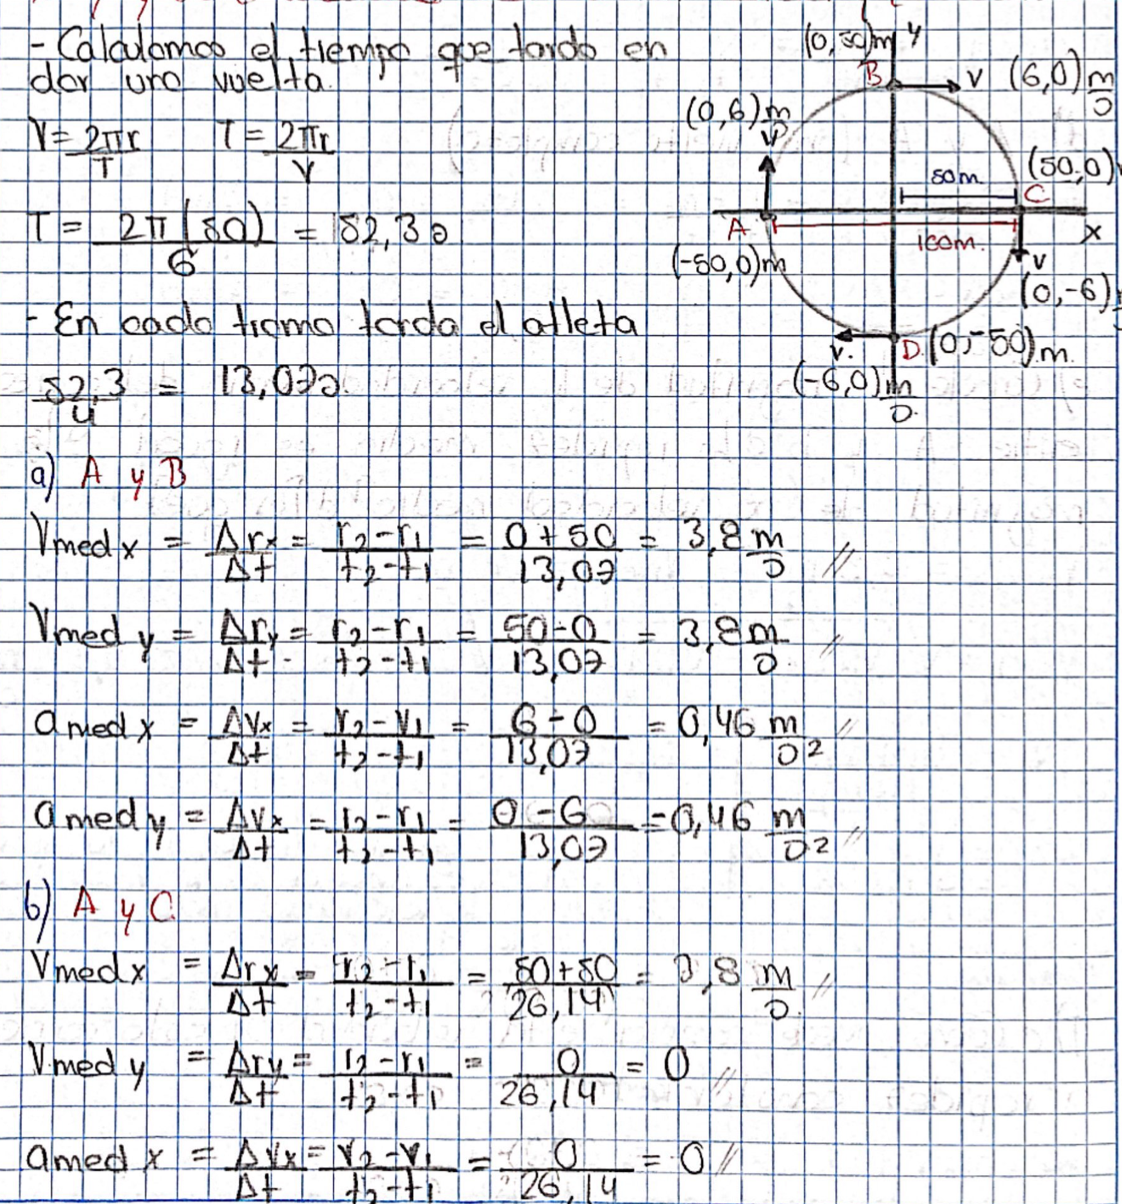 - Calculamos el tiempo que tarda en
dar una vuelta.
V = 2πr / T    T = 2πr / V
T = 2π(50) / 6 = 52,3 s
- En cada tramo tarda el atleta
52,3 / 4 = 13,07 s.
(0,50)m y
B v (6,0) m/s
(0,6) m/s
v
50m. (50,0)
C
A 100m. x
(-50,0)m v
(0,-6)
v. D. (0,-50)m.
(-6,0) m/s.
a) A y B
Vmed x = Δrx / Δt = r2-r1 / t2-t1 = 0+50 / 13,07 = 3,8 m/s //
Vmed y = Δry / Δt = r2-r1 / t2-t1 = 50-0 / 13,07 = 3,8 m/s //
amed x = Δvx / Δt = v2-v1 / t2-t1 = 6-0 / 13,07 = 0,46 m/s² //
amed y = Δvx / Δt = r2-r1 / t2-t1 = 0-6 / 13,07 = -0,46 m/s² //
b) A y C
Vmed x = Δrx / Δt = r2-r1 / t2-t1 = 50+50 / 26,14 = 3,8 m/s. //
Vmed y = Δry / Δt = r2-r1 / t2-t1 = 0 / 26,14 = 0 //
amed x = Δvx / Δt = v2-v1 / t2-t1 = 0 / 26,14 = 0 //